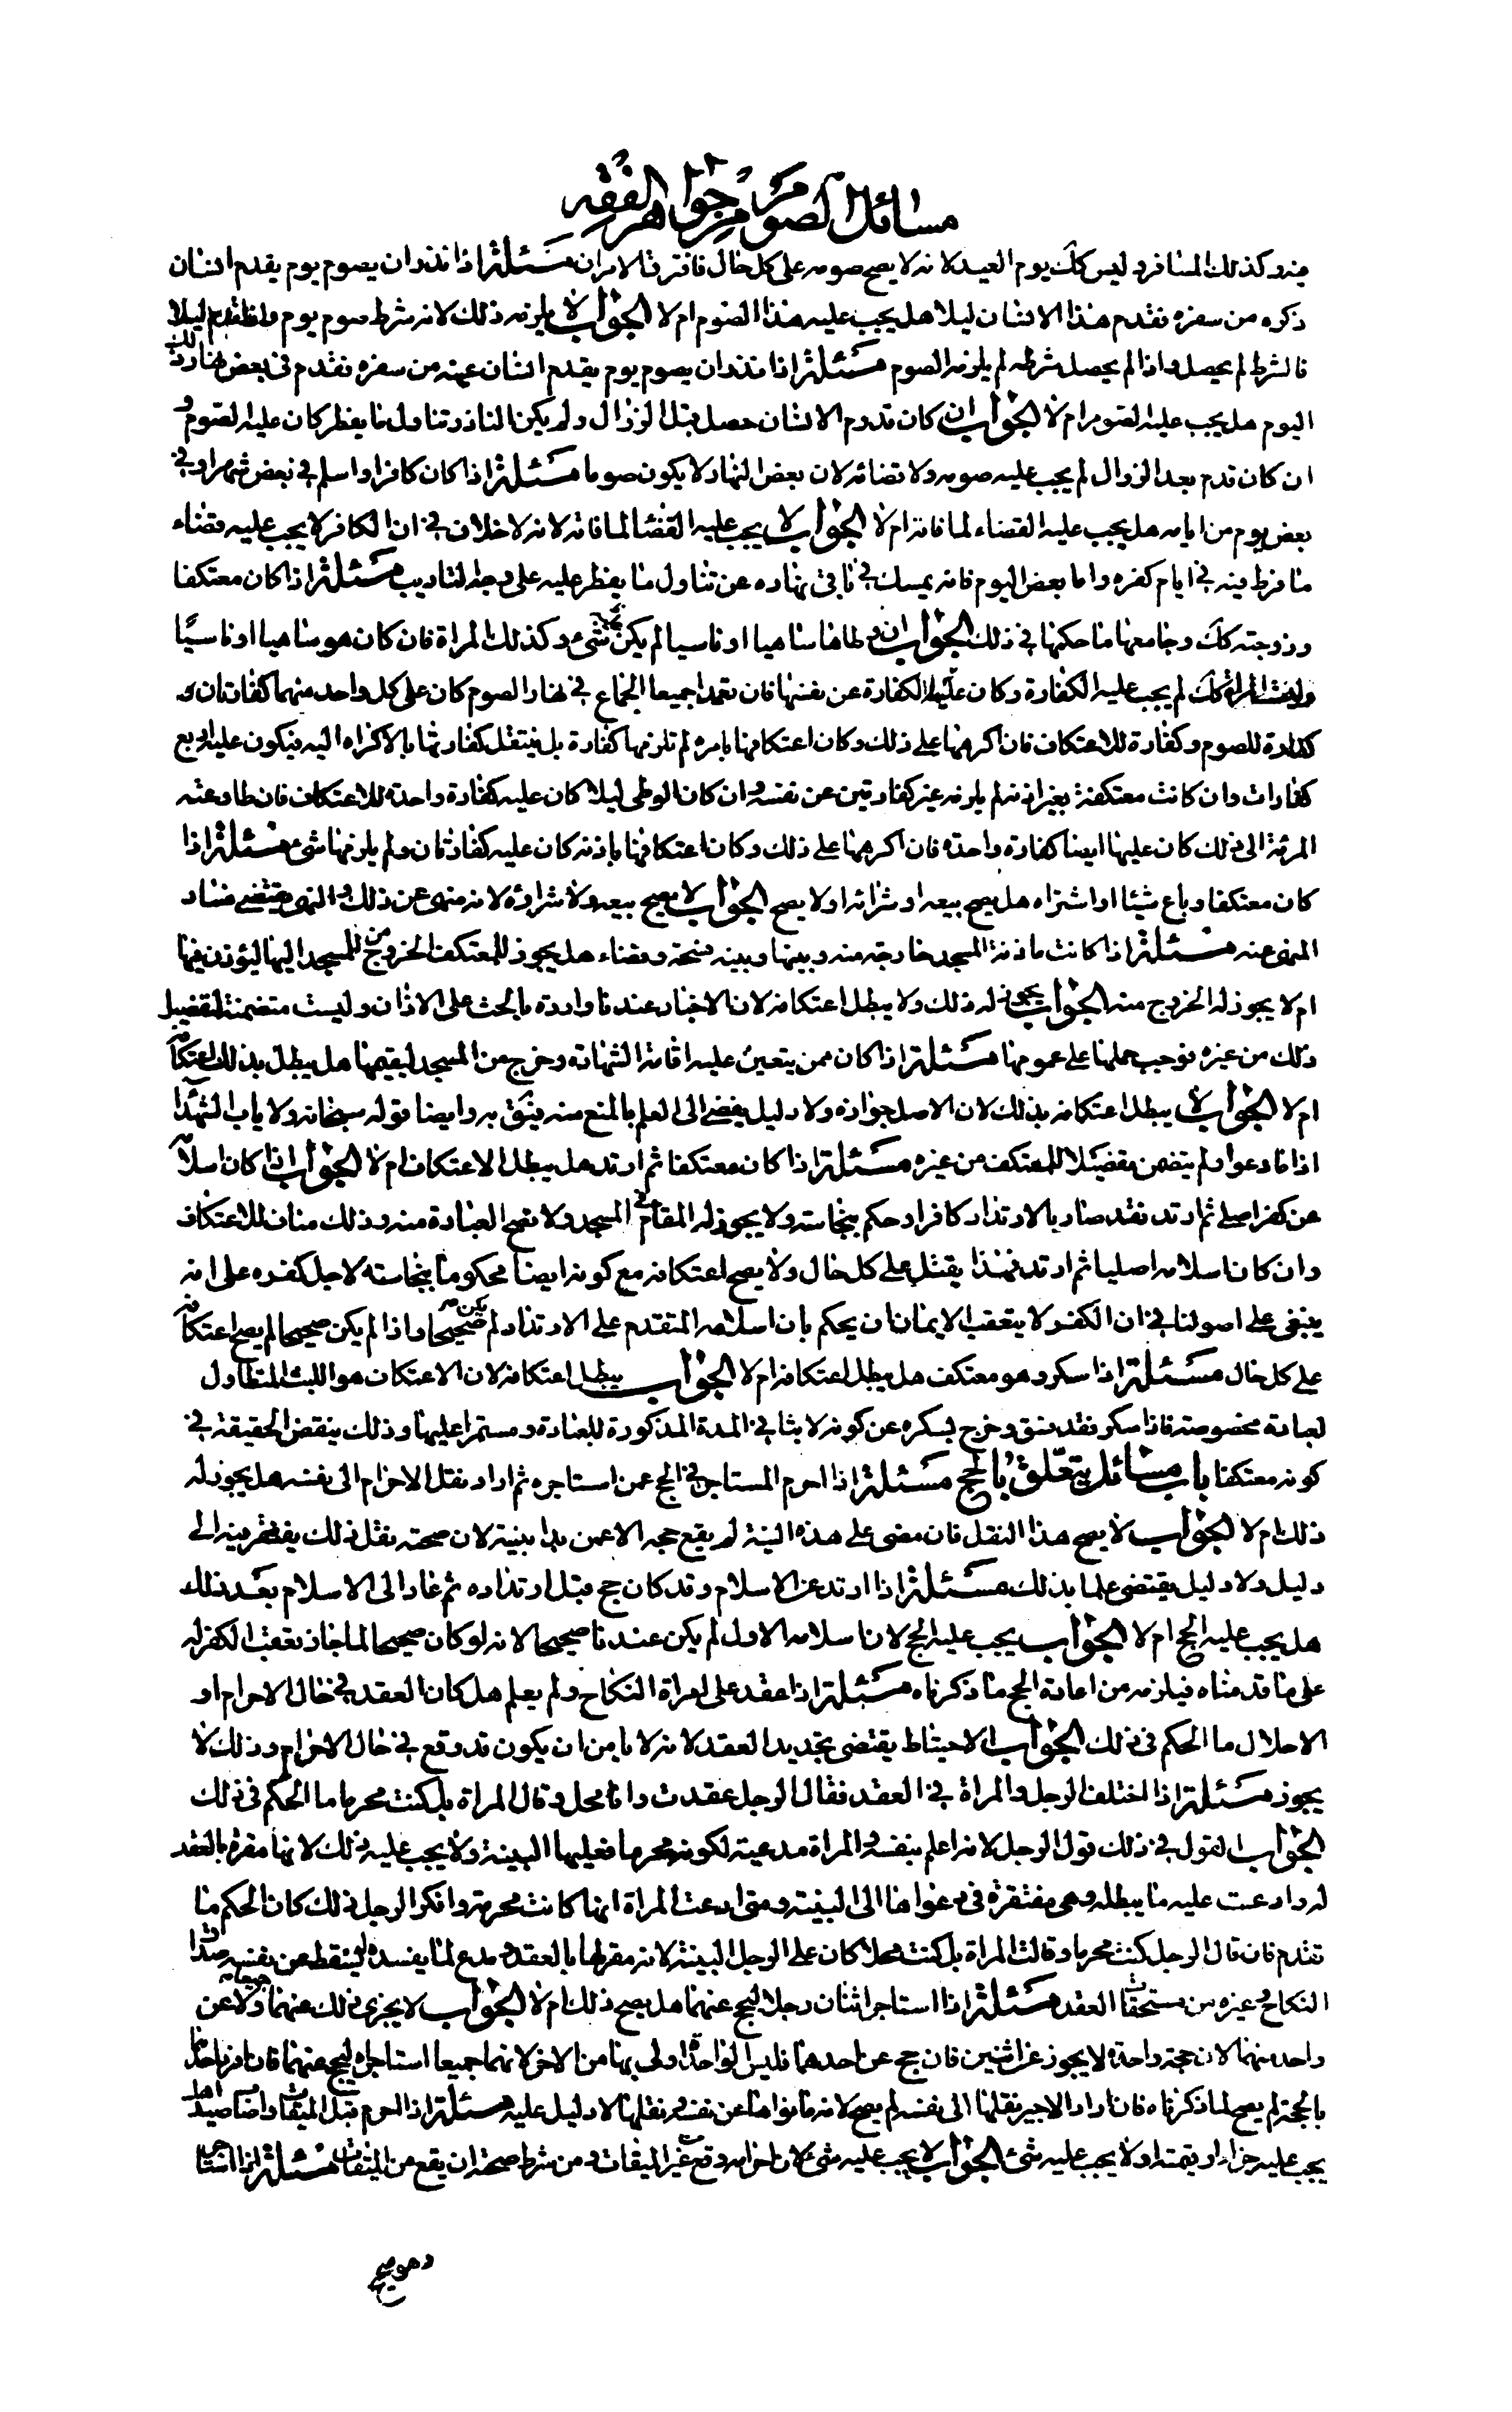 مسائل الصوم من جواهر الفقه
فيه وكذلك المسافر وليس كك يوم العيد لانه لا يصح صومه على كل حال فافترق الامران مسئلة اذا نذر ان يصوم يوم يقدم انسان
ذكره من سفره فقدم هذا الانسان ليلا هل يجب عليه هذا الصوم ام لا الجواب لا يلزمه ذلك لانه شرط صوم يوم واذا قدم ليلا
فالشرط لم يحصل واذا لم يحصل شرطه لم يلزمه الصوم مسئلة اذا نذر ان يصوم يوم يقدم انسان عينه من سفره فقدم في بعض نهار ذلك
اليوم هل يجب عليه الصوم ام لا الجواب ان كان قدوم الانسان حصل قبل الزوال ولم يكن الناذر تناول ما يفطر كان عليه الصوم و
ان كان قدم بعد الزوال لم يجب عليه صومه ولا قضائه لان بعض النهار لا يكون صوما مسئلة اذا كان كافرا واسلم في بعض شهر او في
بعض يوم من ايامه هل يجب عليه القضاء لما فاته ام لا الجواب لا يجب عليه القضا لما فاته لانه لا خلاف في ان الكافر لا يجب عليه قضاء
ما فرط فيه في ايام كفره واما بعض اليوم فانه يمسك في باقي نهاره عن تناول ما يفطر عليه على وجه التاديب مسئلة اذا كان معتكفا
وزوجته كك وجامعها ما حكمها في ذلك الجواب ان وطاها ساهيا او ناسيا لم يكن عليه شئ وكذلك المراة فان كان هو ساهيا او ناسيا
وليست المراة كك لم يجب عليه الكفارة وكان عليها الكفارة عن نفسها فان تعمدا جميعا الجماع في نهار الصوم كان على كل واحد منهما كفارتان
كفارة للصوم وكفارة للاعتكاف فان اكرهها على ذلك وكان اعتكافها بامره لم تلزمها كفارة بل ينتقل كفارتها بالاكراه اليه فيكون عليه اربع
كفارات وان كانت معتكفة بغير اذنه لم يلزمه غير كفارتين عن نفسه وان كان الوطى ليلا كان عليه كفارة واحدة للاعتكاف فان طاوعته
المرئة الى ذلك كان عليها ايضا كفارة واحدة فان اكرهها على ذلك وكان اعتكافها باذنه كان عليه كفارتان ولم يلزمها شئ مسئلة اذا
كان معتكفا وباع شيئا او اشتراه هل يصح بيعه او شرائه او لا يصح الجواب لا يصح بيعه ولا شراؤه لانه منهى عن ذلك والنهى يقتضي فساد
المنهى عنه مسئلة اذا كانت ماذنة المسجد خارجة منه وبينها وبينه فسحة وفضاء هل يجوز للمعتكف الخروج من المسجد اليها ليؤذن فيها
ام لا يجوز له الخروج منه الجواب يجوز له ذلك ولا يبطل اعتكافه لان الاخبار عندنا واردة بالحث على الاذان وليست متضمنة لتفضيل
ذلك من غيره فوجب حملها على عمومها مسئلة اذا كان ممن يتعين عليه اقامة الشهادة وخرج من المسجد ليقيمها هل يبطل بذلك اعتكافه
ام لا الجواب لا يبطل اعتكافه بذلك لان الاصل جوازه ولا دليل يفضى الى العلم بالمنع منه فينق به وايضا قوله سبحانه ولا ياب الشهداء
اذا ما دعوا ولم يتضمن تفضيلا للمعتكف من غيره مسئلة اذا كان معتكفا ثم ارتد هل يبطل الاعتكاف ام لا الجواب اذا كان اسلامه
عن كفر اصلي ثم ارتد فقد صار بالارتداد كافرا وحكم بنجاسته ولا يجوز له المقام في المسجد ولا تصح العبادة منه وذلك مناف للاعتكاف
وان كان اسلامه اصليا ثم ارتد فهذا يقتل على كل حال ولا يصح اعتكافه مع كونه ايضا محكوما بنجاسته لاجل كفره على انه
ينبغي على اصولنا في ان الكفر لا يتعقب الايمان ان يحكم بان اسلامه المتقدم على الارتداد لم يكن صحيحا واذا لم يكن صحيحا لم يصح اعتكافه
على كل حال مسئلة اذا سكر وهو معتكف هل يبطل اعتكافه ام لا الجواب يبطل اعتكافه لان الاعتكاف هو اللبث المتطاول
لعبادة مخصوصة فاذا سكر فقد فسق وخرج بسكره عن كونه لابثا في المدة المذكورة للعبادة ومستمرا عليها وذلك ينقض الحقيقة في
كونه معتكفا باب مسائل يتعلق بالحج مسئلة اذا احرم المستاجر في الحج عمن استاجره ثم اراد نقل الاحرام الى نفسه هل يجوز له
ذلك ام لا الجواب لا يصح هذا النقل فان مضى على هذه النية لم يقع حجه الا عمن بدا بنيته لان صحة نقل ذلك يفتقر فيه الى
دليل ولا دليل يقتضى علما بذلك مسئلة اذا ارتد عن الاسلام وقد كان حج قبل ارتداده ثم عاد الى الاسلام بعد ذلك
هل يجب عليه الحج ام لا الجواب يجب عليه الحج لان اسلامه الاول لم يكن عندنا صحيحا لانه لو كان صحيحا لما جاز تعقب الكفر له
على ما قدمناه فيلزمه من اعادة الحج ما ذكرناه مسئلة اذا عقد على امراة النكاح ولم يعلم هل كان العقد في حال الاحرام او
الاحلال ما الحكم في ذلك الجواب الاحتياط يقتضى تجديد العقد لانه لا يامن ان يكون قد وقع في حال الاحرام وذلك لا
يجوز مسئلة اذا اختلف الرجل والمراة في العقد فقال الرجل عقدت وانا محل وقال المراة بل كنت محرما ما الحكم في ذلك
الجواب القول في ذلك قول الرجل لانه اعلم بنفسه والمراة مدعية لكونه محرما فعليها البينة ولا يجب عليه ذلك لانها مقرة بالعقد
له وادعت عليه ما يبطله وهى مفتقرة في دعواها الى البينة ومتى ادعت المراة انها كانت محرمة وانكر الرجل ذلك كان الحكم ما
تقدم فان قال الرجل كنت محرما وقالت المراة بل كنت محلا كان على الرجل البينة لانه مقر لها بالعقد ومدع لما يفسده ليسقط عن نفسه صداق
النكاح وغيره من مستحقات العقد مسئلة اذا استاجر اثنان رجلا ليحج عنهما هل يصح ذلك ام لا الجواب لا يجزى ذلك عنهما جميعا ولا عن
واحد منهما لان حجة واحدة لا يجوز عن اثنين فان حج عن احدهما فليس الواحد اولى بها من الاخر لانهما جميعا استاجراه ليحج عنهما فان افرد احدهما
بالحجة لم يصح لما ذكرناه فان اراد الاجير نقلها الى نفسه لم يصح لانه ما نواها عن نفسه ونقلها لا دليل عليه مسئلة اذا احرم قبل الميقات واصاب صيدا هل
يجب عليه جزاء او قيمته او لا يجب عليه شئ الجواب لا يجب عليه شئ لان احرامه وقع في غير الميقات ومن شرط صحته ان يقع من الميقات مسئلة اذا استاجر
وهو صحيح